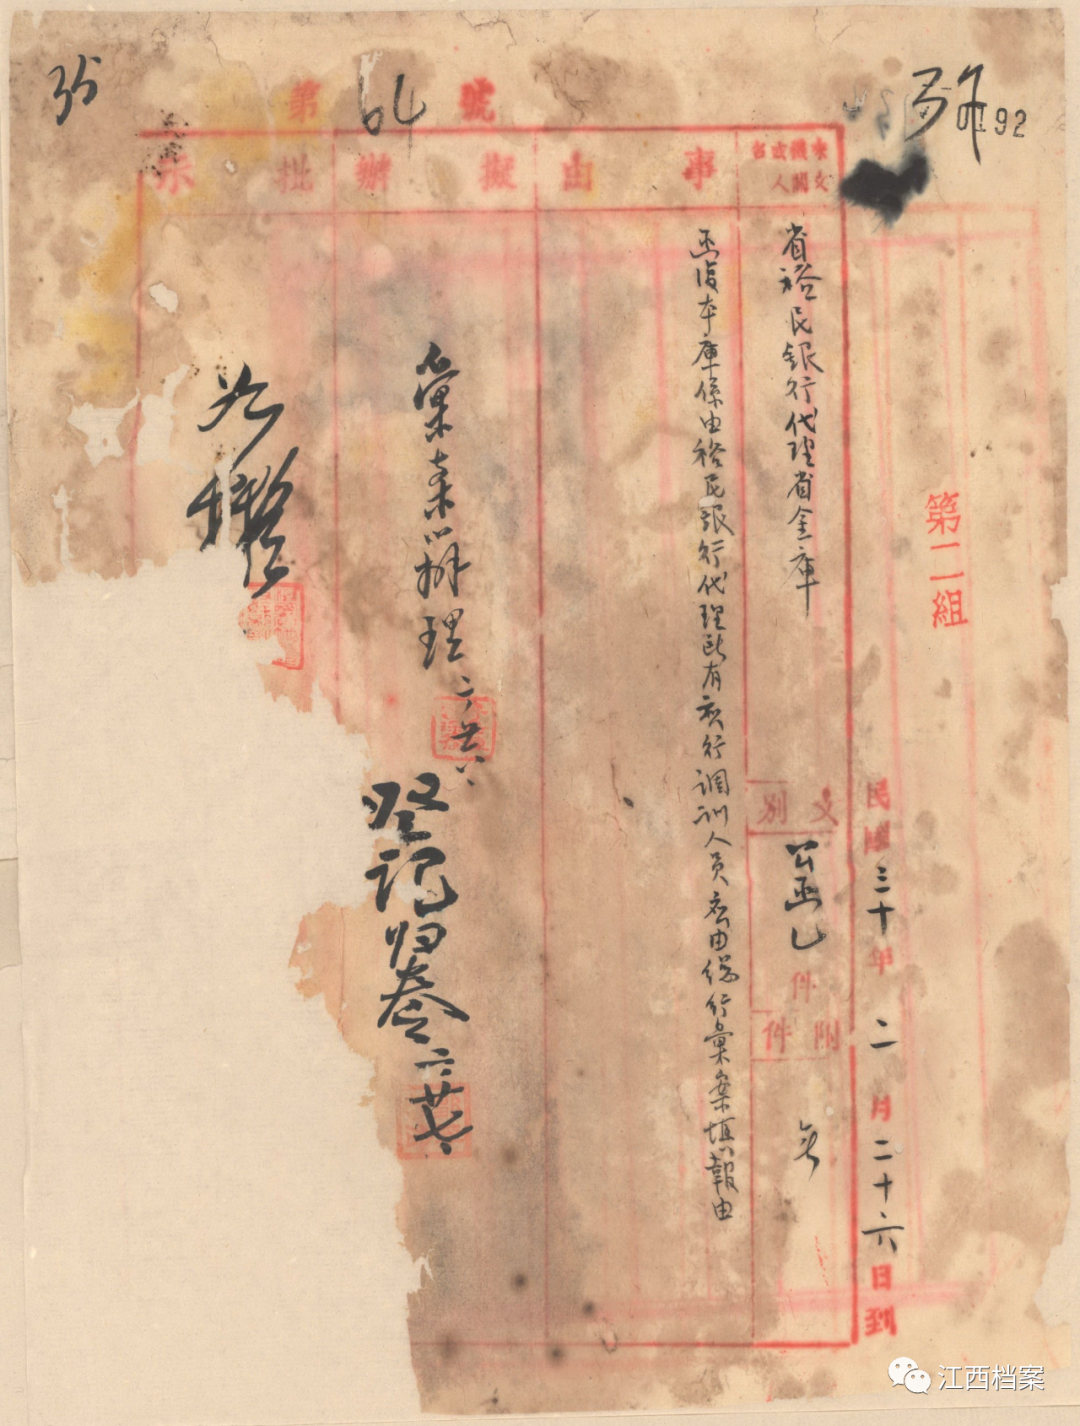 第64號
0192
第二組
民國三十年二月二十六日到
來文機關或人名
省裕民銀行代理省金庫
文別
公函
件
附件
無
事由
函復本庫係由裕民銀行代理所有敝行調訓人員應由總行彙案填報由
擬辦
彙案辦理 二 廿六
登記归卷 二 廿七
批示
江西档案